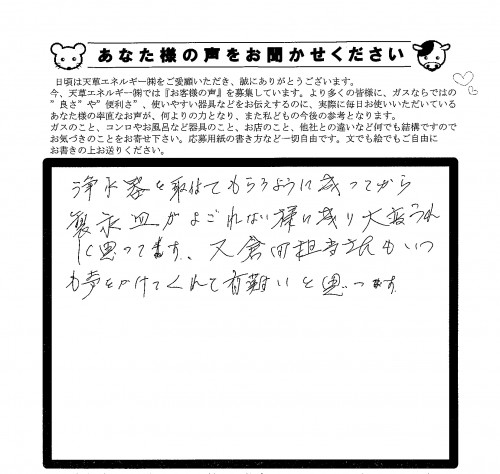 あなた様の声をお聞かせください
日頃は天草エネルギー㈱をご愛顧いただき、誠にありがとうございます。
今、天草エネルギー㈱では『お客様の声』を募集しています。より多くの皆様に、ガスならではの
"良さ"や"便利さ"、使いやすい器具などをお伝えするのに、実際に毎日お使いいただいている
あなた様の率直なお声が、何よりの力となり、また私どもの今後の参考となります。
ガスのこと、コンロやお風呂など器具のこと、お店のこと、他社との違いなど何でも結構ですので
お気づきのことをお寄せ下さい。応募用紙の書き方など一切自由です。文でも絵でもご自由に
お書きの上お送りください。
浄水器を取付てもらうように成ってから
製氷皿がよごれない様に成り大変うれ
しく思ってます、又倉田担当さんもいつ
も声をかけてくれて有難いと思います